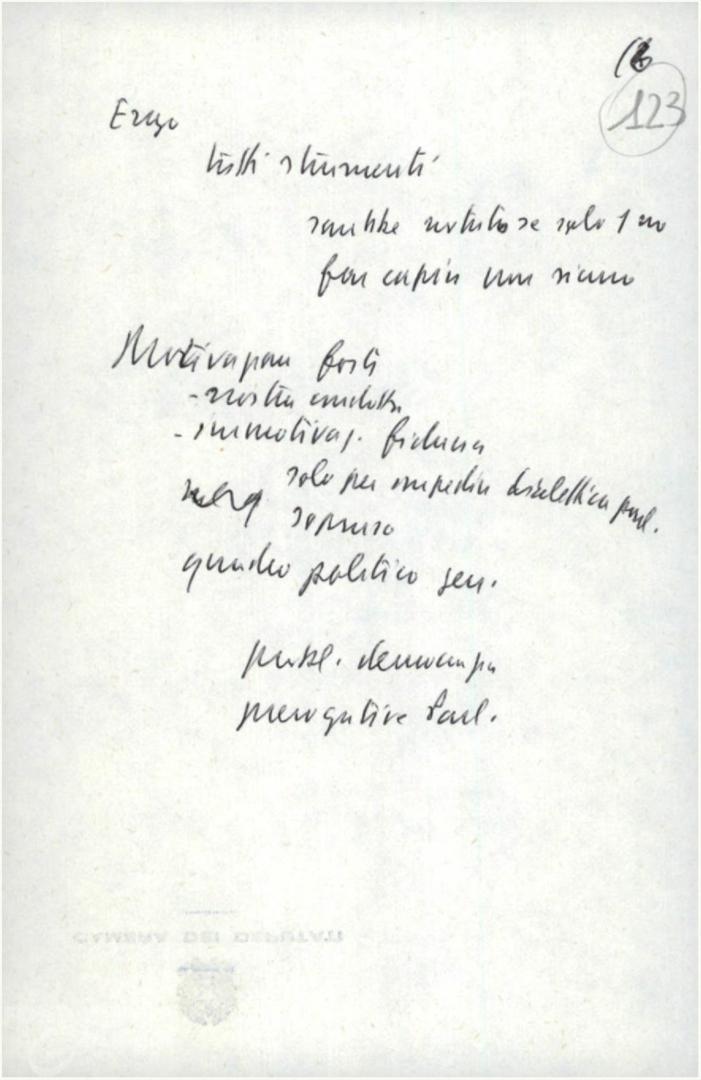 123
Ergo
tutti strumenti
sarebbe solo 1 no
far capire non siamo
Motivazioni forti
- nostra condotta
- immotivaz. fiducia
solo per impedire dialettica parl.
sopruso
quadro politico gen.
probl. democrazia
prerogative Parl.
CAMERA DEI DEPUTATI